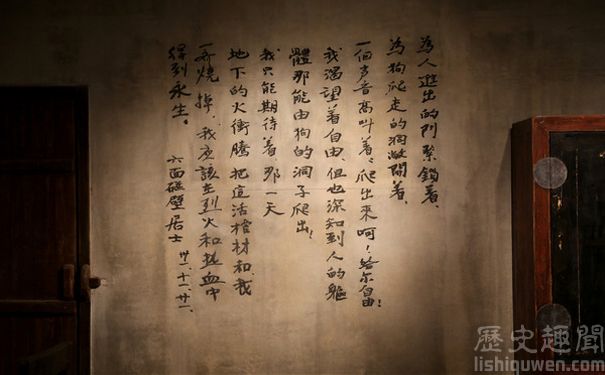 為人進出的門緊鎖着、
為狗爬走的洞敞開着、
一個声音高叫着、爬出來呵！給尔自由！
我渴望着自由、但也深知到人的軀
體那能由狗的洞子爬出！
我只能期待着、那一天
地下的火衝騰把這活棺材和我
一齐燒掉、我應該在烈火和热血中
得到永生。
六面碰壁居士
卅一·十一·廿一·
歷史趣聞
lishiquwen.com